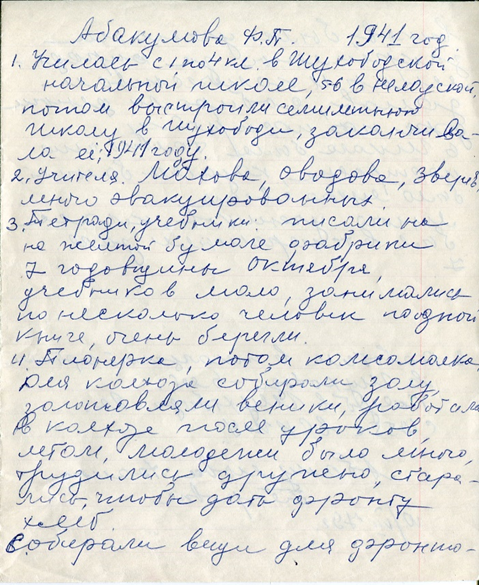 Абакумова Ф.П. 1941 год.
1. Училась с 1 по 4 кл. в Шухободской
начальной школе, в Нелазской,
потом выстроили семилетнюю
школу в Шухободи, заканчива-
ла её, 1941 году.
2. Учителя. Махова, Оводова, Зверев,
много эвакуированных.
3. Тетради, учебники. писали на
на жёлтой бумаге фабрики
7 годовщины Октября,
учебников мало, занимались
по несколько человек по одной
книге, очень берегли.
4. Пионерка, потом комсомолка,
для колхоза собирали золу,
заготовляли веники, работали
в колхозе после уроков,
летом, молодежи было много,
трудились дружно, стара-
лись, чтобы дать фронту
хлеб
собирали вещи для фронто-